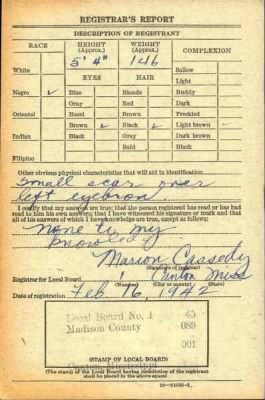 REGISTRAR'S REPORT
DESCRIPTION OF REGISTRANT
RACE HEIGHT (Approx.) WEIGHT (Approx.) COMPLEXION
5' 4" 146
White Sallow
EYES HAIR Light
Negro ✓ Blue Blonde Ruddy
Gray Red Dark
Oriental Hazel Brown Freckled
Brown ✓ Black ✓ Light brown ✓
Indian Black Gray Dark brown
Bald Black
Filipino
Other obvious physical characteristics that will aid in identification
Small scar over
left eyebrow
I certify that my answers are true; that the person registered has read or has had
read to him his own answers; that I have witnessed his signature or mark and that
all of his answers of which I have knowledge are true, except as follows:
None to my
knowledge
Marion Cassedy
(Signature of registrar)
Registrar for Local Board 1 Canton Miss
(Number) (City or county) (State)
Date of registration Feb 16, 1942
Local Board No. 1 45
Madison County 089
001
Canton, Mississippi
STAMP OF LOCAL BOARD
(The stamp of the Local Board having jurisdiction of the registrant
shall be placed in the above space)